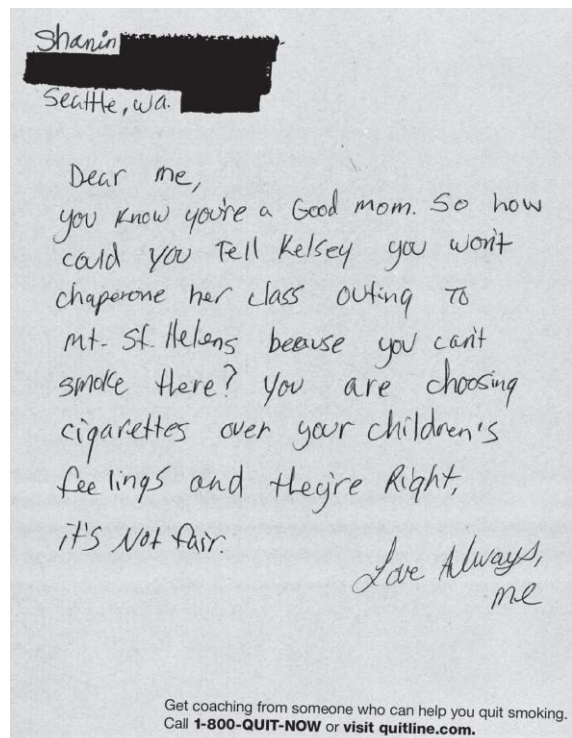 Shanin
Seattle, wa.
Dear me,
you know you're a Good mom. So how
could you Tell Kelsey you won't
chaperone her class outing To
mt. St. Helens because you can't
smoke there? you are choosing
cigarettes over your children's
feelings and they're Right,
it's Not fair.
Love Always,
me
Get coaching from someone who can help you quit smoking.
Call 1-800-QUIT-NOW or visit quitline.com.